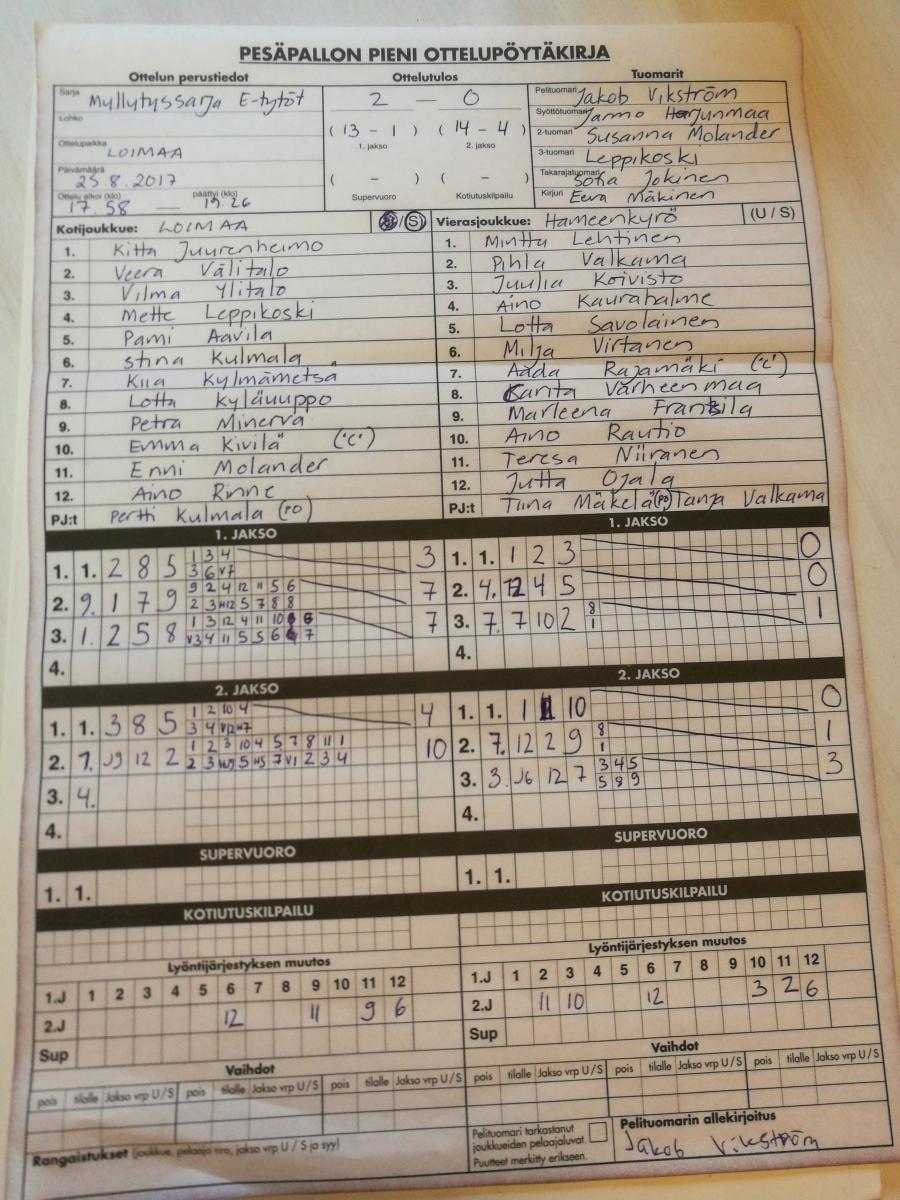 PESÄPALLON PIENI OTTELUPÖYTÄKIRJA
Ottelun perustiedot Ottelutulos Tuomarit
Sarja Myllytyssarja E-tytöt 2 - 0 Pelituomari Jakob Vikström
Lohko Syöttötuomari Jarmo Harjunmaa
( 13 - 1 ) ( 14 - 4 ) 2-tuomari Susanna Molander
Ottelupaikka LOIMAA 1. jakso 2. jakso 3-tuomari Leppikoski
Päivämäärä 25.8.2017 ( - ) ( - ) Takarajatuomari Sofia Jokinen
Ottelu alkoi (klo) 17.58 päättyi (klo) 19.26 Supervuoro Kotiutuskilpailu Kirjuri Eeva Mäkinen
Kotijoukkue: LOIMAA (U/S) Vierasjoukkue: Hämeenkyrö (U / S)
1. Kitta Juurenheimo 1. Minttu Lehtinen
2. Veera Välitalo 2. Pihla Valkama
3. Vilma Ylitalo 3. Juulia Koivisto
4. Mette Leppikoski 4. Aino Kaurahalme
5. Pami Aavila 5. Lotta Savolainen
6. Stina Kulmala 6. Milja Virtanen
7. Kiia Kylmämetsä 7. Aada Rajamäki ("C")
8. Lotta Kyläuuppo 8. Carita Varheenmaa
9. Petra Minerva 9. Marleena Franssila
10. Emma Kivilä ("C") 10. Aino Rautio
11. Enni Molander 11. Teresa Niiranen
12. Aino Rinne 12. Jutta Ojala
PJ:t Pertti Kulmala (PO) PJ:t Tiina Mäkelä (PO) Tanja Valkama
1. JAKSO 1. JAKSO
1. 1. 2 8 5 1 3 4 3 1. 1. 1 2 3 0
3 6 V7
2. 9. 1 7 9 9 2 4 12 11 5 6 7 2. 4. 12 4 5 0
2 3 H12 5 7 8 8
3. 1. 2 5 8 1 3 12 4 11 10 6 7 3. 7. 7 10 2 8 1
V3 4 11 5 5 6 7 1
4. 4.
2. JAKSO 2. JAKSO
1. 1. 3 8 5 1 2 10 4 4 1. 1. 1 10 0
3 4 V12 H7
2. 7. J9 12 2 1 2 3 10 4 5 7 8 11 1 10 2. 7. 12 2 9 8 1
2 3 5 H5 7 V1 2 3 4 1
3. 4. 3. 3. J6 12 7 3 4 5 3
5 8 9
4. 4.
SUPERVUORO SUPERVUORO
1. 1. 1. 1.
KOTIUTUSKILPAILU KOTIUTUSKILPAILU
Lyöntijärjestyksen muutos Lyöntijärjestyksen muutos
1.J 1 2 3 4 5 6 7 8 9 10 11 12 1.J 1 2 3 4 5 6 7 8 9 10 11 12
2.J 12 11 9 6 2.J 11 10 12 3 2 6
Sup Sup
Vaihdot Vaihdot
pois tilalle Jakso vrp U/S pois tilalle Jakso vrp U/S pois tilalle Jakso vrp U/S pois tilalle Jakso vrp U/S pois tilalle Jakso vrp U/S pois tilalle Jakso vrp U/S
Rangaistukset (joukkue, pelaaja nro, jakso vrp U / S ja syy)
Pelituomari tarkastanut
joukkueiden pelaajaluvat.
Puutteet merkitty erikseen.
Pelituomarin allekirjoitus
Jakob Vikström